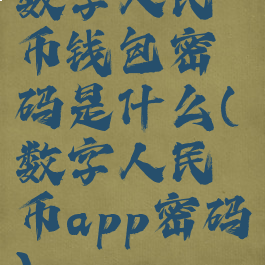 数字人民
币钱包密
码是什么(
数字人民
币app密码
)